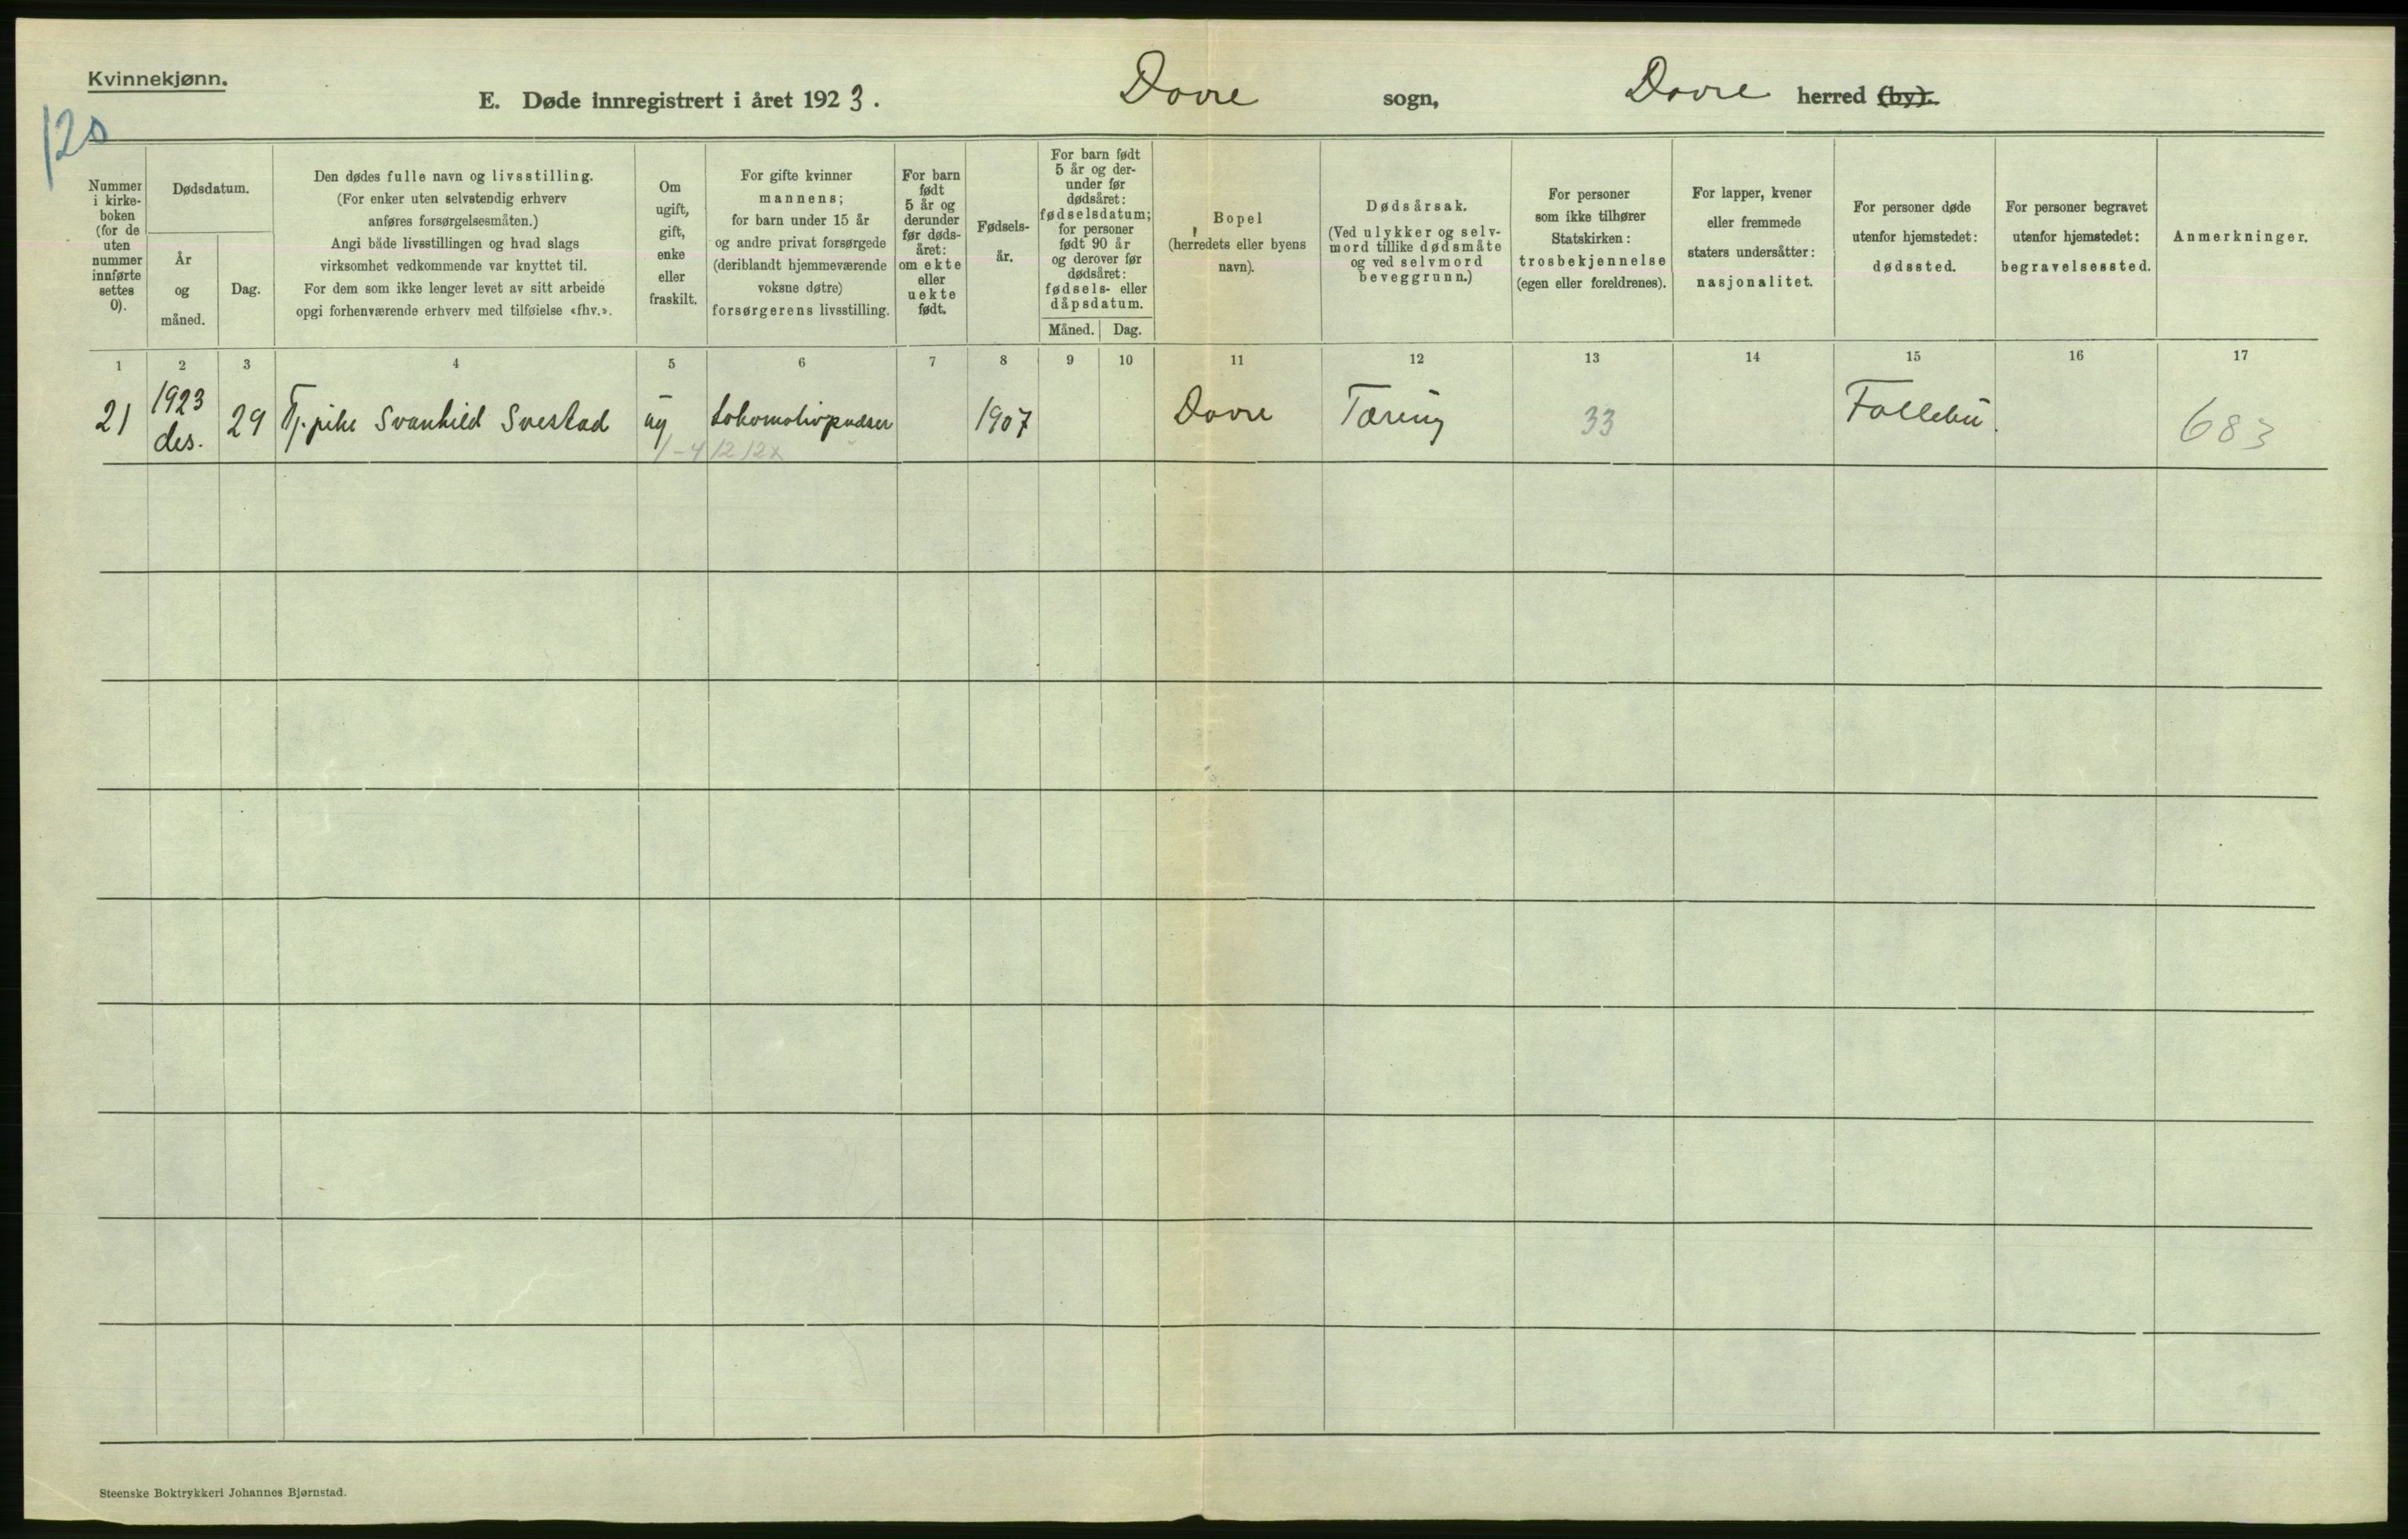 Kvinnekjønn.
E. Døde innregistrert i året 1923.
Dovre sogn,
Dovre herred (by).
120
Nummer i kirke-
boken
(for de
uten
nummer
innførte
settes
0).
Dødsdatum.
År
og
måned.
Dag.
Den dødes fulle navn og livsstilling.
(For enker uten selvstendig erhverv
anføres forsørgelsesmåten.)
Angi både livsstillingen og hvad slags
virksomhet vedkommende var knyttet til.
For dem som ikke lenger levet av sitt arbeide
opgi forhenværende erhverv med tilføielse «fhv.».
Om
ugift,
gift,
enke
eller
fraskilt.
For gifte kvinner
mannens;
for barn under 15 år
og andre privat forsørgede
(deriblandt hjemmeværende
voksne døtre)
forsørgerens livsstilling.
For barn
født
5 år og
derunder
før døds-
året:
om ekte
eller
uekte
født.
Fødsels-
år.
For barn født
5 år og der-
under før
dødsåret:
fødselsdatum;
for personer
født 90 år
og derover før
dødsåret:
fødsels- eller
dåpsdatum.
Måned. Dag.
Bopel
(herredets eller byens
navn).
Dødsårsak.
(Ved ulykker og selv-
mord tillike dødsmåte
og ved selvmord
beveggrunn.)
For personer
som ikke tilhører
Statskirken:
trosbekjennelse
(egen eller foreldrenes).
For lapper, kvener
eller fremmede
staters undersåtter:
nasjonalitet.
For personer døde
utenfor hjemstedet:
dødssted.
For personer begravet
utenfor hjemstedet:
begravelsessted.
Anmerkninger.
1 2 3 4 5 6 7 8 9 10 11 12 13 14 15 16 17
21 1923 des. 29 Tj. pike Svanhild Svestad ug Lokomotivpudser 1907 Dovre Tæring 33 Follebu. 683
Steenske Boktrykkeri Johannes Bjørnstad.